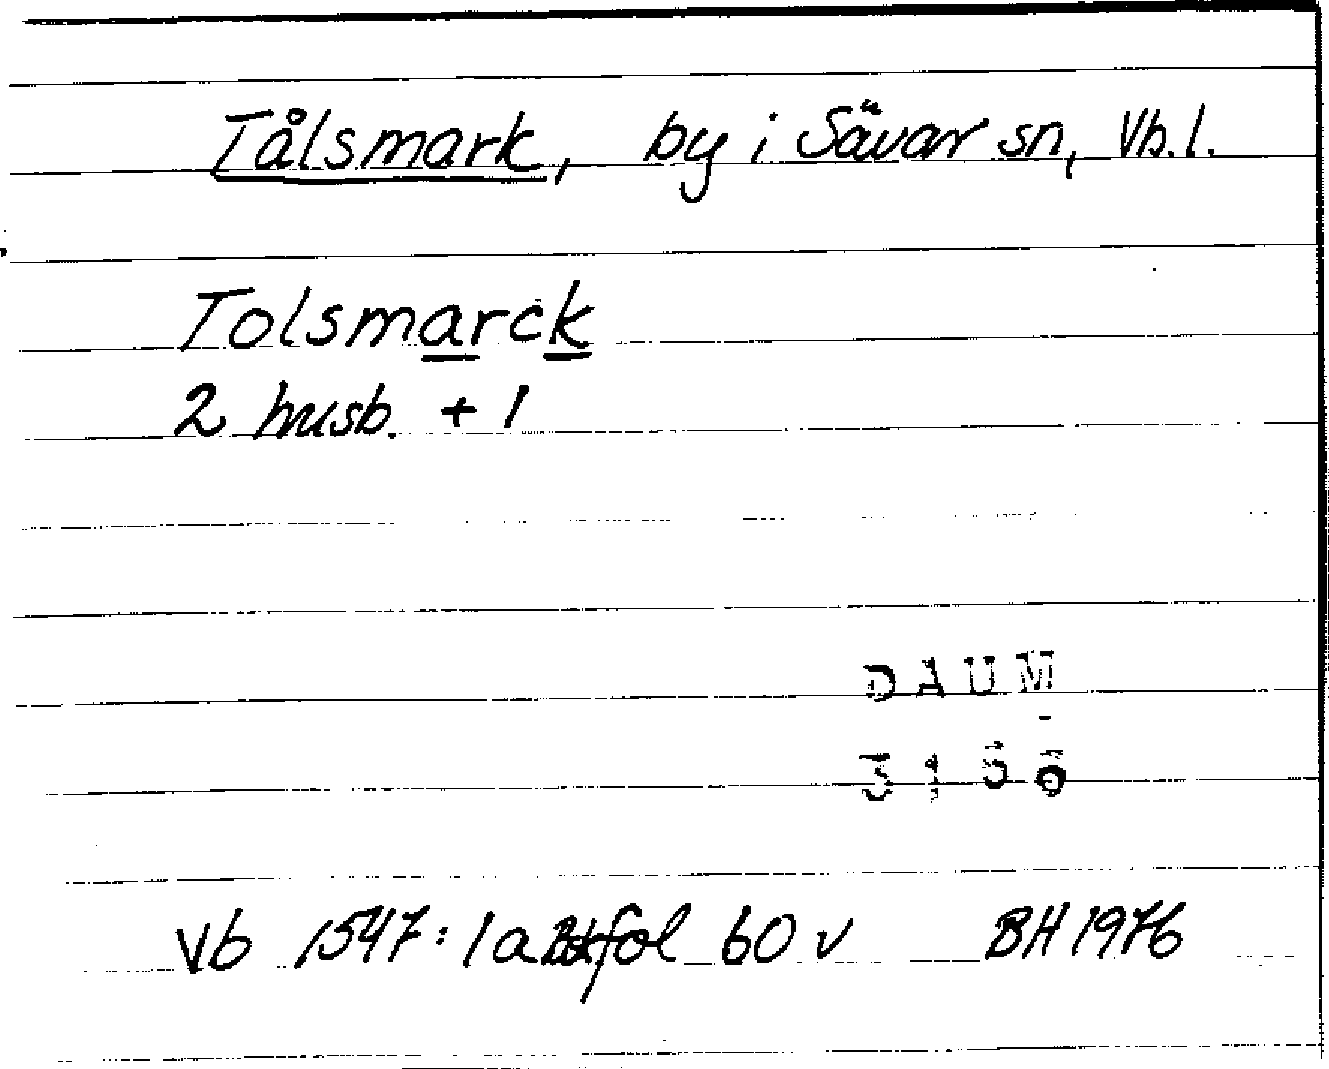 Tålsmark, by i Sävar sn, Vb.l.
Tolsmarck
2 husb. + 1
DAUM
Vb 1547:1a fol 60 v BH 1976